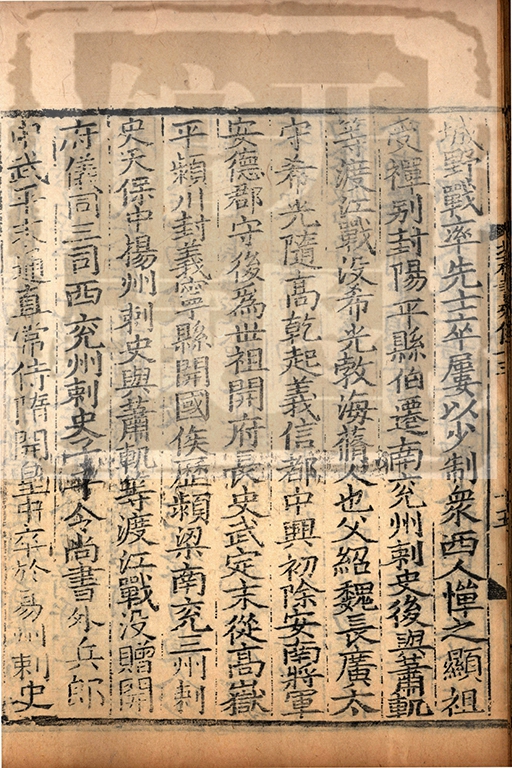 城野戰率先士卒屢以少制衆西人憚之顯祖
受禪别封陽平縣伯遷南兖州刺史後與蕭軌
等渡江戰没希光敦海蓨人也父紹魏長廣太
守希光隨高乾起義信都中興初除安南將軍
安德郡守後爲世祖開府長史武定末從高嶽
平潁川封義寧縣開國侯歷潁梁南兖三州刺
史天保中揚州刺史與蕭軌等渡江戰没贈開
府儀同三司西兖州刺史子子令尚書外兵郎
中武平末通直常侍隋開皇中卒於易州刺史